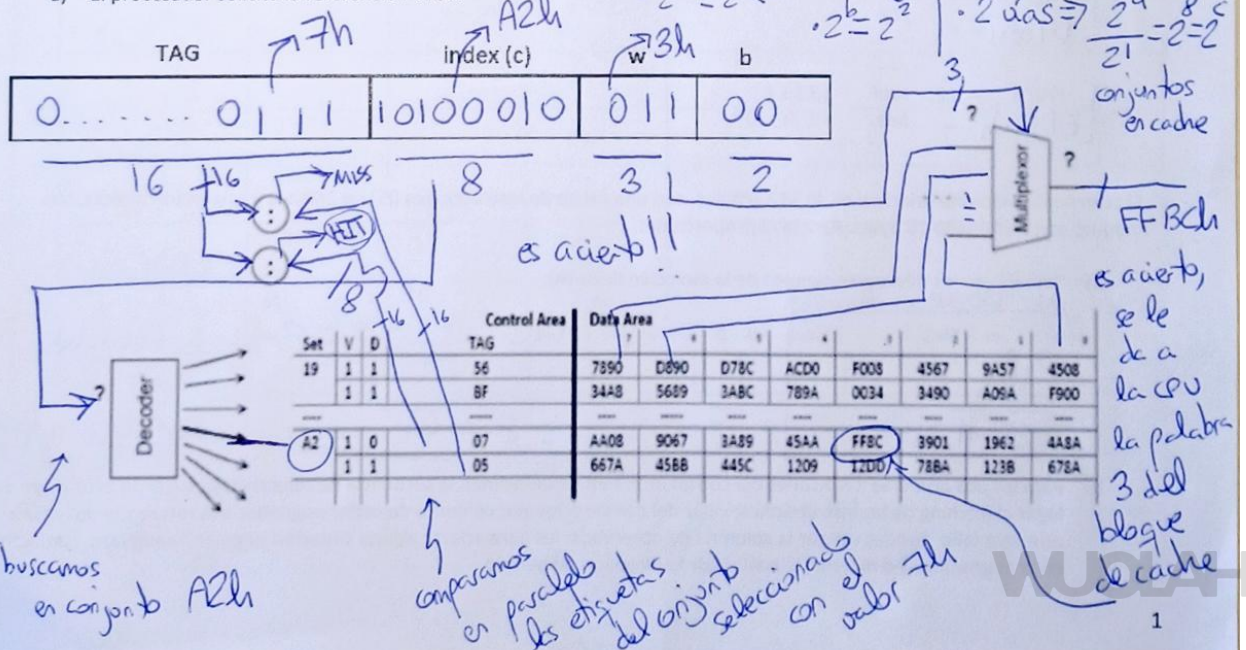 7h
A2h
3h
TAG
index (c)
w
b
0........ 01111
10100010
011
00
16
8
3
2
·2^b=2^2
·2 vías ⇒
=2^8=2^c
conjuntos
en cache
16
MISS
:
HIT
:
8
es acierto!!
3
?
?
Multiplexor
FFBCh
es acierto,
se le
da a
la CPU
la palabra
3 del
bloque
de cache
16
16
Control Area
Data Area
Set V D TAG 7 6 5 4 3 2 1 0
19 1 1 56 7890 D890 D78C ACD0 F008 4567 9A57 4508
1 1 BF 34A8 5689 3ABC 789A 0034 3490 A09A F900
A2 1 0 07 AA08 9067 3A89 45AA FFBC 3901 1962 4A8A
1 1 05 667A 45BB 445C 1209 12DD 78BA 123B 678A
?
Decoder
buscamos
en conjunto A2h
comparamos
en paralelo
las etiquetas
del conjunto
seleccionado
con el
valor 7h
WUOLAH
1